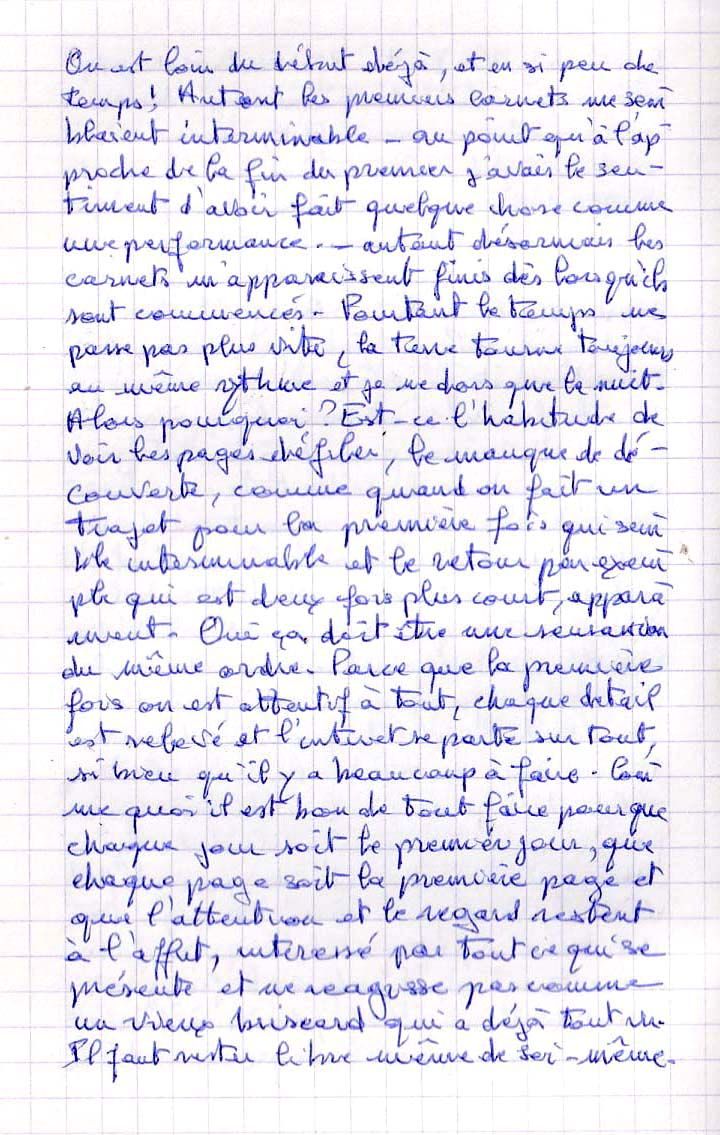 On est loin du début déjà, et en si peu de
temps! Autant les premiers carnets me sem
blaient interminable - au point qu'à l'ap
proche de la fin du premier j'avais le sen-
timent d'avoir fait quelque chose comme
une performance. - autant désormais les
carnets m'apparaissent finis dès lors qu'ils
sont commencés. Pourtant le temps ne
passe pas plus vite, la terre tourne toujours
au même rythme et je ne dors que la nuit.
Alors pourquoi? Est-ce l'habitude de
voir les pages défiler, le manque de dé-
couverte, comme quand on fait un
trajet pour la première fois qui sem
ble interminable et le retour par exem
ple qui est deux fois plus court, appara
ment. Oui ça doit être une sensation
du même ordre. Parce que la première
fois on est attentif à tout, chaque détail
est relevé et l'intéret se porte sur tout,
si bien qu'il y a beaucoup à faire. Com
me quoi il est bon de tout faire pour que
chaque jour soit le premier jour, que
chaque page soit la première page et
que l'attention et le regard restent
à l'affut, interessé par tout ce qui se
présente et ne reagisse pas comme
un vieux briscard qui a déjà tout vu.
Il faut rester libre même de soi-même.